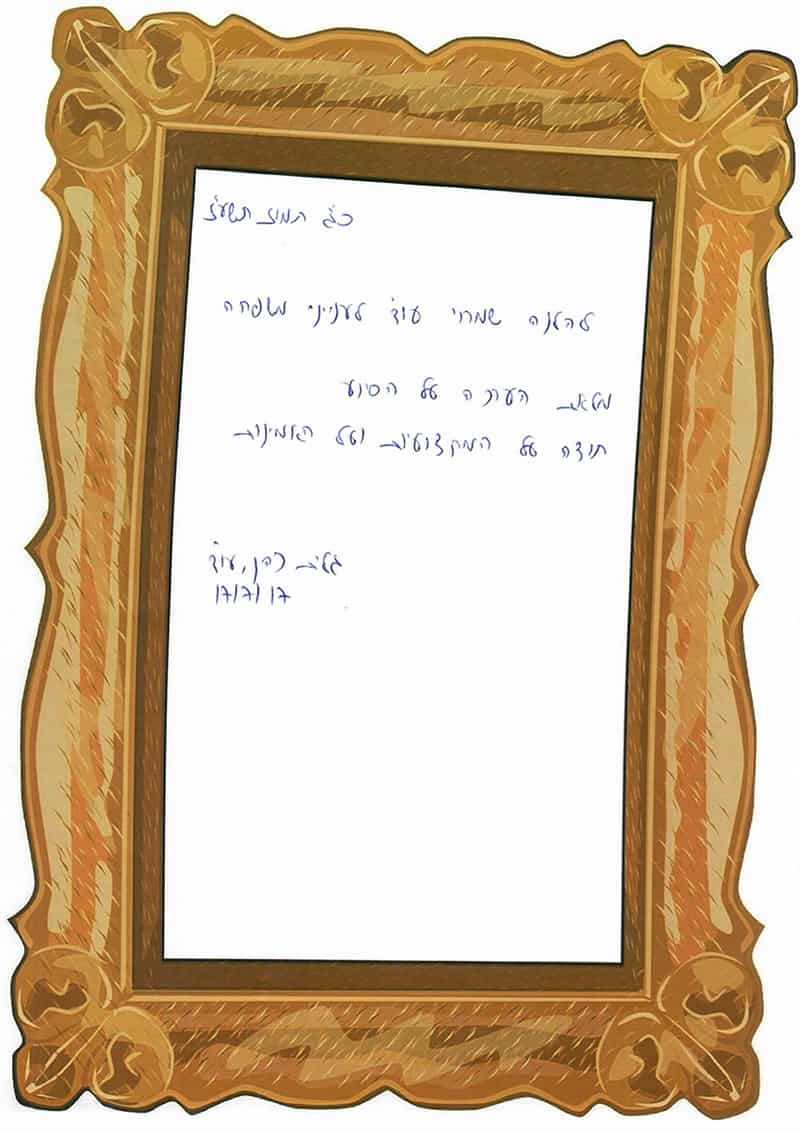 כ"ג תמוז תשע"ז
להלנה שמחי עו"ד לענייני משפחה
מלאת הערכה על הסיוע
תודה על המקצועיות ועל הזמינות
גלית כהן, עו"ד
17/7/17